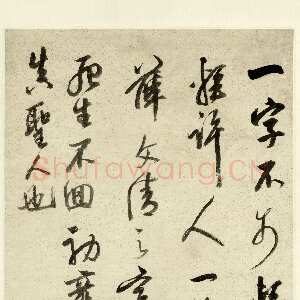 一字不
輕許人一
薛文清之
死生不回初
真聖人也
Shufawang.CN